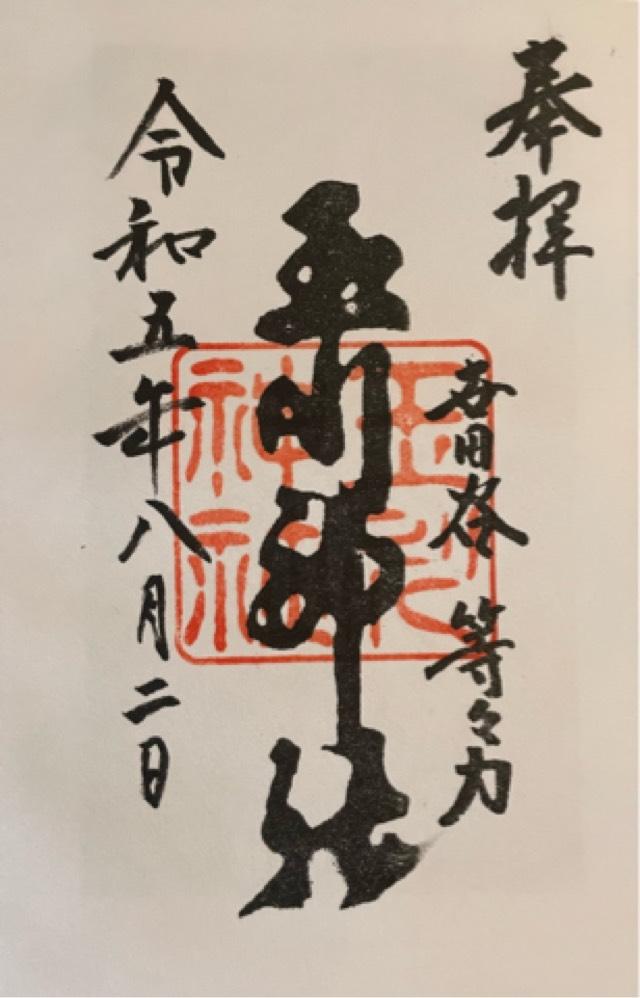 奉拝
世田谷 等々力
玉川神社
玉川神社
令和五年八月二日